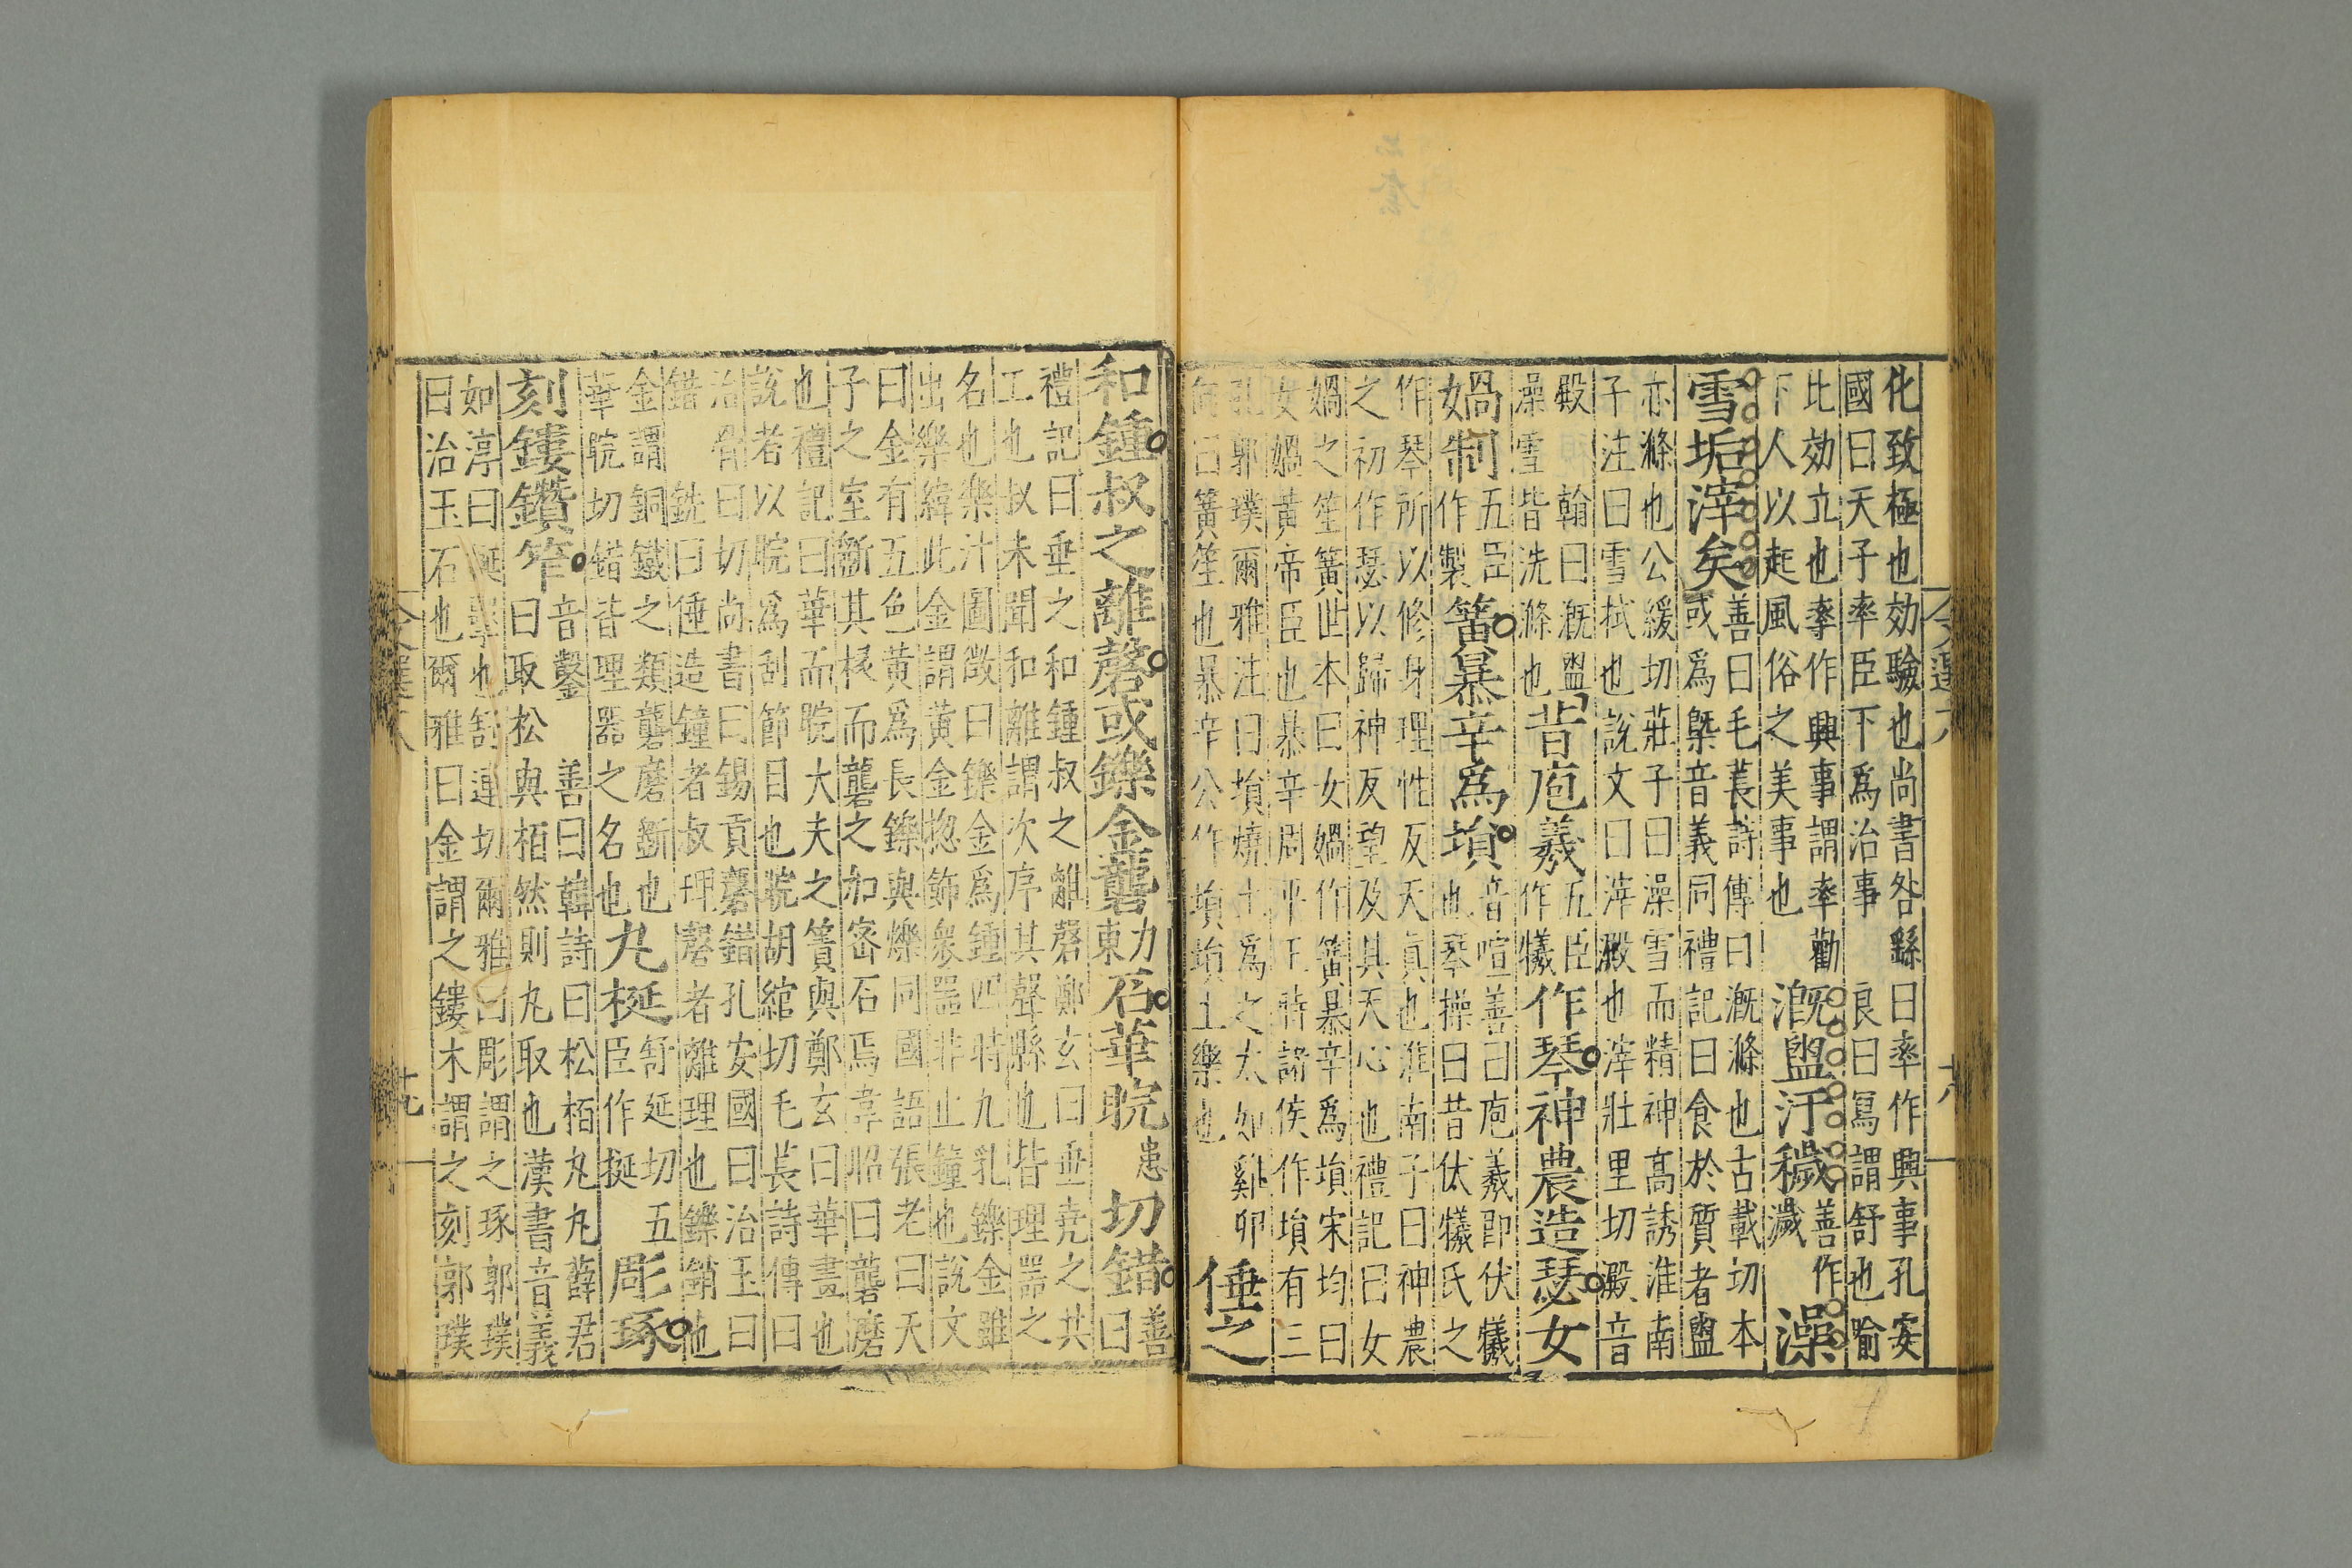 化致極也効驗也尚書咎繇曰率作興事孔安
國曰天子率臣下爲治事 良曰寫謂舒也喻
比効立也率作興事謂率勸
下人以起風俗之美事也
溉盥汙穢善作
濊
澡
雪垢滓矣善曰毛萇詩傳曰溉滌也古載切本
或爲槩音義同禮記曰食於質者盥
亦滌也公緩切莊子曰澡雪而精神高誘淮南
子注曰雪拭也說文曰滓澱也滓壯里切澱音
殿 翰曰溉盥
澡雪皆洗滌也
昔庖羲五臣
作犧
作琴神農造瑟女
媧制五臣
作製
簧暴辛爲塤音喧善曰庖羲即伏犧
也琴操曰昔伏犧氏之
作琴所以修身理性反天眞也淮南子曰神農
之初作瑟以歸神反望及其天心也禮記曰女
媧之笙簧世本曰女媧作簧暴辛爲塤宋均曰
女媧黄帝臣也暴辛周平王時諸侯作塤有三
孔郭璞爾雅注曰塤燒土爲之大如雞卵
向曰簧笙也暴辛公作塤塤土樂也
倕之
和鍾叔之離磬或鑠金礱力
東
石華睆患
切錯善
曰
禮記曰垂之和鍾叔之離磬鄭玄曰垂堯之共
工也叔未聞和離謂次序其聲縣也皆理器之
名也樂汁圖徴曰鑠金爲鍾四時九乳鑠金雖
出樂緯此金謂黄金惣飾衆器非止鐘也說文
曰金有五色黄爲長鑠與爍同國語張老曰天
子之室斲其椽而礱之加密石焉韋昭曰礱磨
也禮記曰華而睆大夫之簀與鄭玄曰華畫也
說者以睆爲刮節目也睆胡綰切毛萇詩傳曰
治骨曰切尚書曰錫貢磬錯孔安國曰治玉曰
錯 銑曰倕造鐘者叔理磬者離理也鑠銷也
金謂銅鐵之類礱磨斲也
華睆切錯皆理器之名也
丸梴舒延切五
臣作挻
彫琢
刻鏤鑽笮音鑿 善曰韓詩曰松栢丸丸薛君
曰取松與栢然則丸取也漢書音義
如淳曰挻擊也舒連切爾雅曰彫謂之琢郭璞
曰治玉石也爾雅曰金謂之鏤木謂之刻郭璞
文選
十八
十九